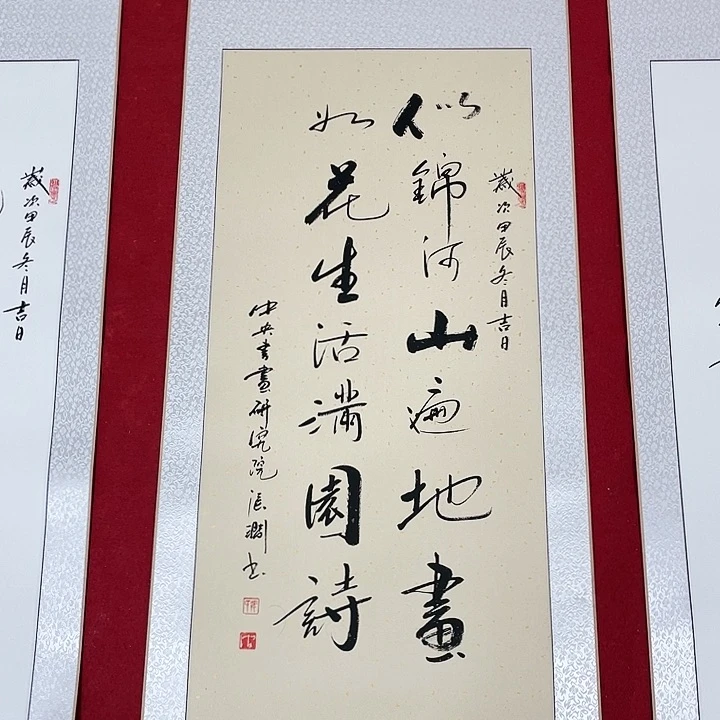 歲次甲辰冬月吉日
似錦河山遍地畫
如花生活滿園詩
中央書畫研究院張
書
歲次甲辰冬月吉日